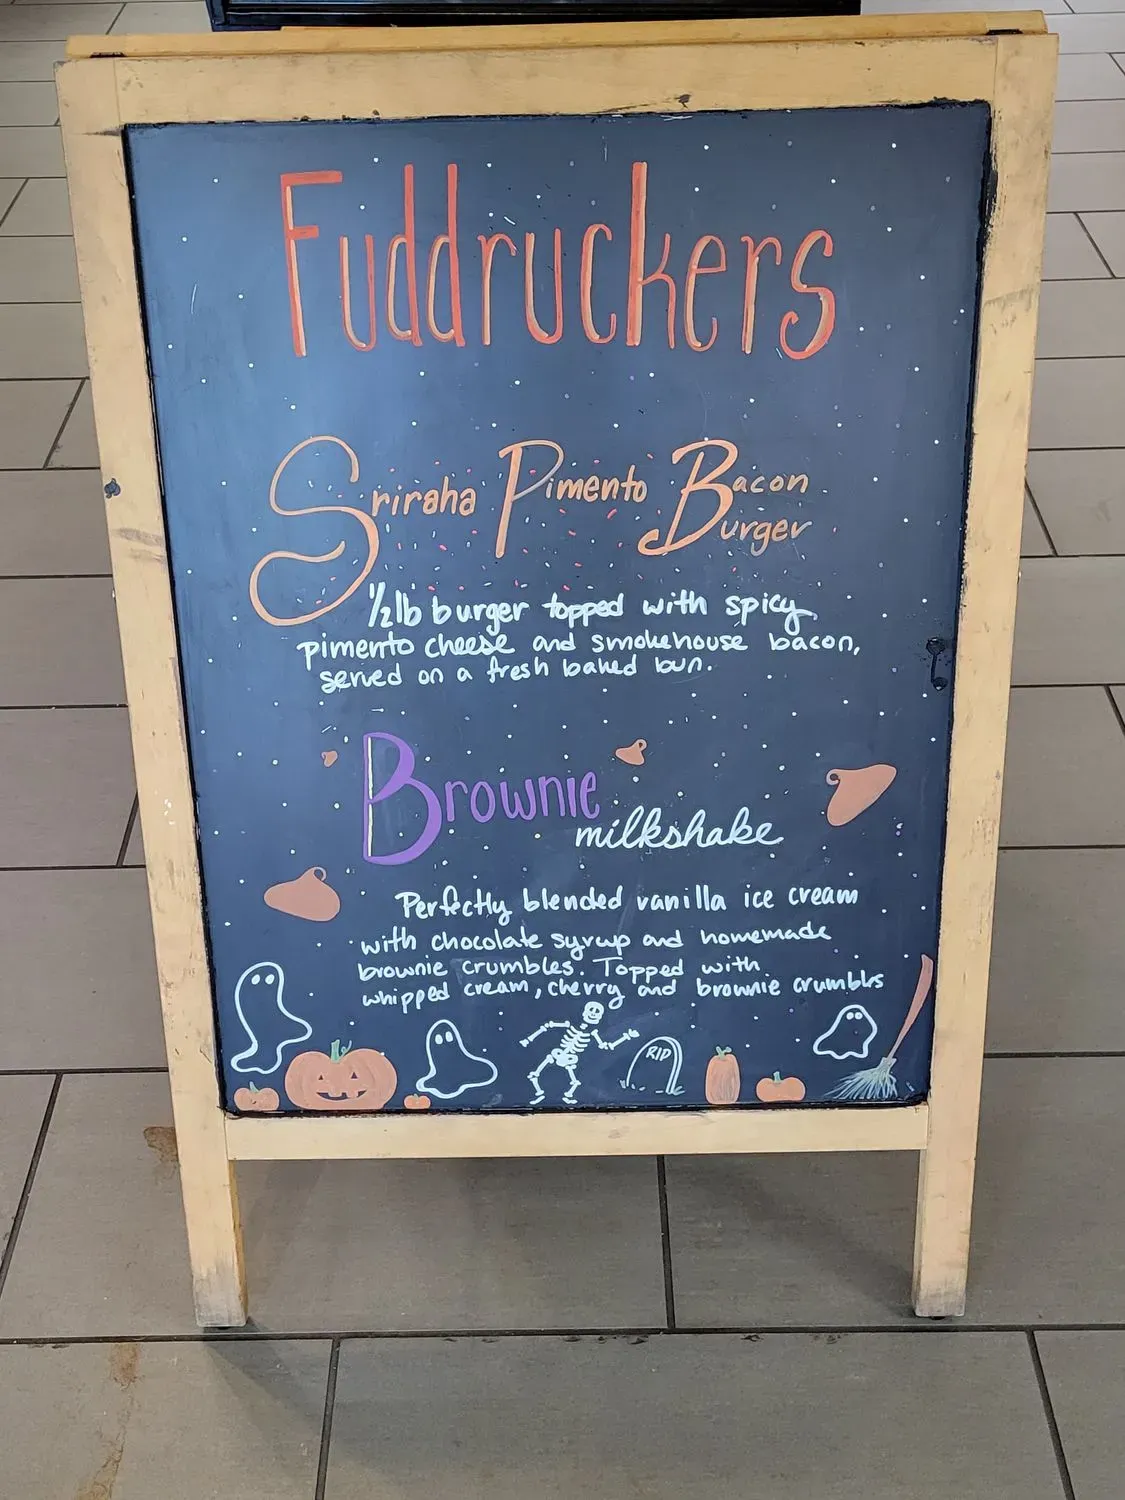 Fuddruckers
Sriraha Pimento Bacon
Burger
1/2lb burger topped with spicy
pimento cheese and smokehouse bacon,
served on a fresh baked bun.
Brownie
milkshake
Perfectly blended vanilla ice cream
with chocolate syrup and homemade
brownie crumbles. Topped with
whipped cream, cherry and brownie crumbls
RIP